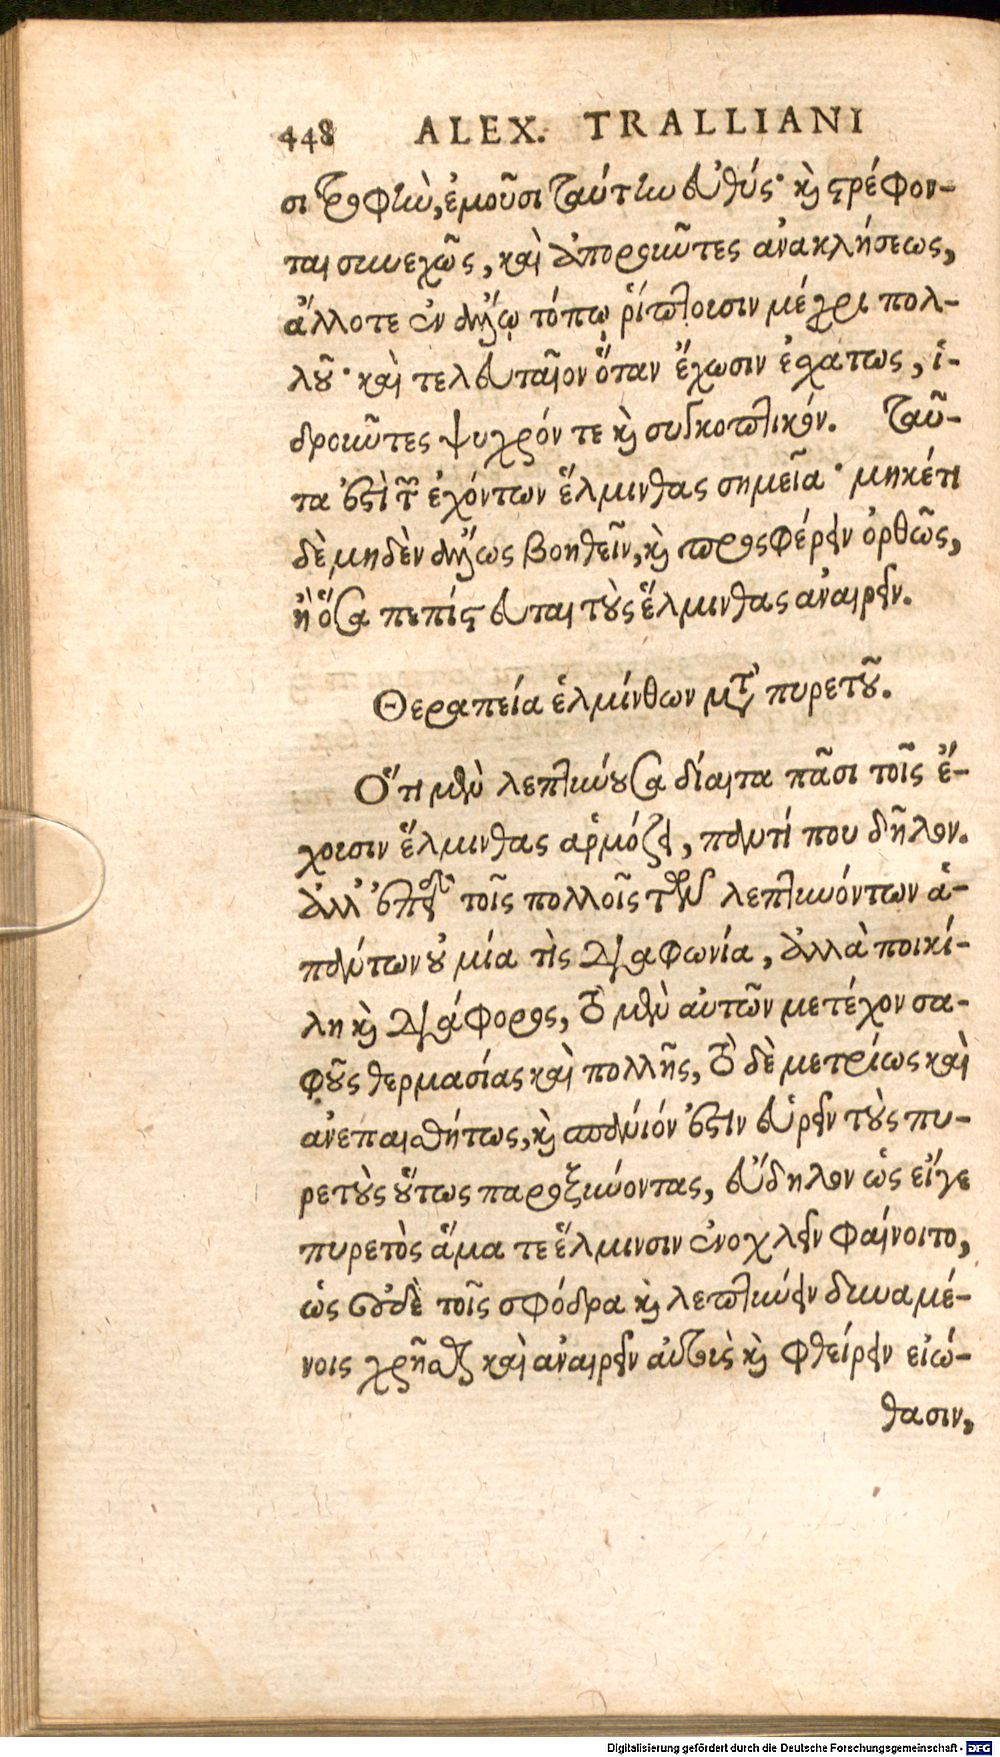 448 ALEX. TRALLIANI
σι τροφὴν, ἐμοῦσι ταύτην εὐθύς· καὶ στρέφον-
ται συνεχῶς, καὶ ἀποροῦντες ἀνακλήσεως,
ἄλλοτε ἐν ἄλλῳ τόπῳ ῥίπτουσιν μέχρι πολ-
λοῦ· καὶ τελευταῖον ὅταν ἔχωσιν ἐσχάτως, ἱ-
δροῦντες ψυχρόν τε καὶ συγκοπτικόν. Ταῦ-
τα ἐστὶ τῶν ἐχόντων ἕλμινθας σημεῖα· μηκέτι
δὲ μηδὲν ἄλλως βοηθεῖν, καὶ προσφέρειν ὀρθῶς,
ἢ ὅσα πεπίστευται τοὺς ἕλμινθας ἀναιρεῖν.
Θεραπεία ἑλμίνθων μετὰ πυρετοῦ.
Ὅτι μὲν λεπτύνουσα δίαιτα πᾶσι τοῖς ἔ-
χουσιν ἕλμινθας ἁρμόζει, παντί που δῆλον.
ἀλλ' ἐπεὶ τοῖς πολλοῖς τῶν λεπτυνόντων ἁ-
πάντων οὐ μία τὶς διαφωνία, ἀλλὰ ποικί-
λη καὶ διάφορος, τὸ μὲν αὐτῶν μετέχον σα-
φοῦς θερμασίας καὶ πολλῆς, τὸ δὲ μετρίως καὶ
ἀνεπαισθήτως, καὶ σπάνιόν ἐστιν εὑρεῖν τοὺς πυ-
ρετοὺς οὕτως παροξύνοντας, εὔδηλον ὡς εἴγε
πυρετὸς ἅμα τε ἕλμινσιν ἐνοχλεῖν φαίνοιτο,
ὡς οὐδὲ τοῖς σφόδρα καὶ λεπτύνειν δυναμέ-
νοις χρῆσθαι καὶ ἀναιρεῖν αὐτοὺς καὶ φθείρειν εἰώ-
θασιν,
Digitalisierung gefördert durch die Deutsche Forschungsgemeinschaft - DFG